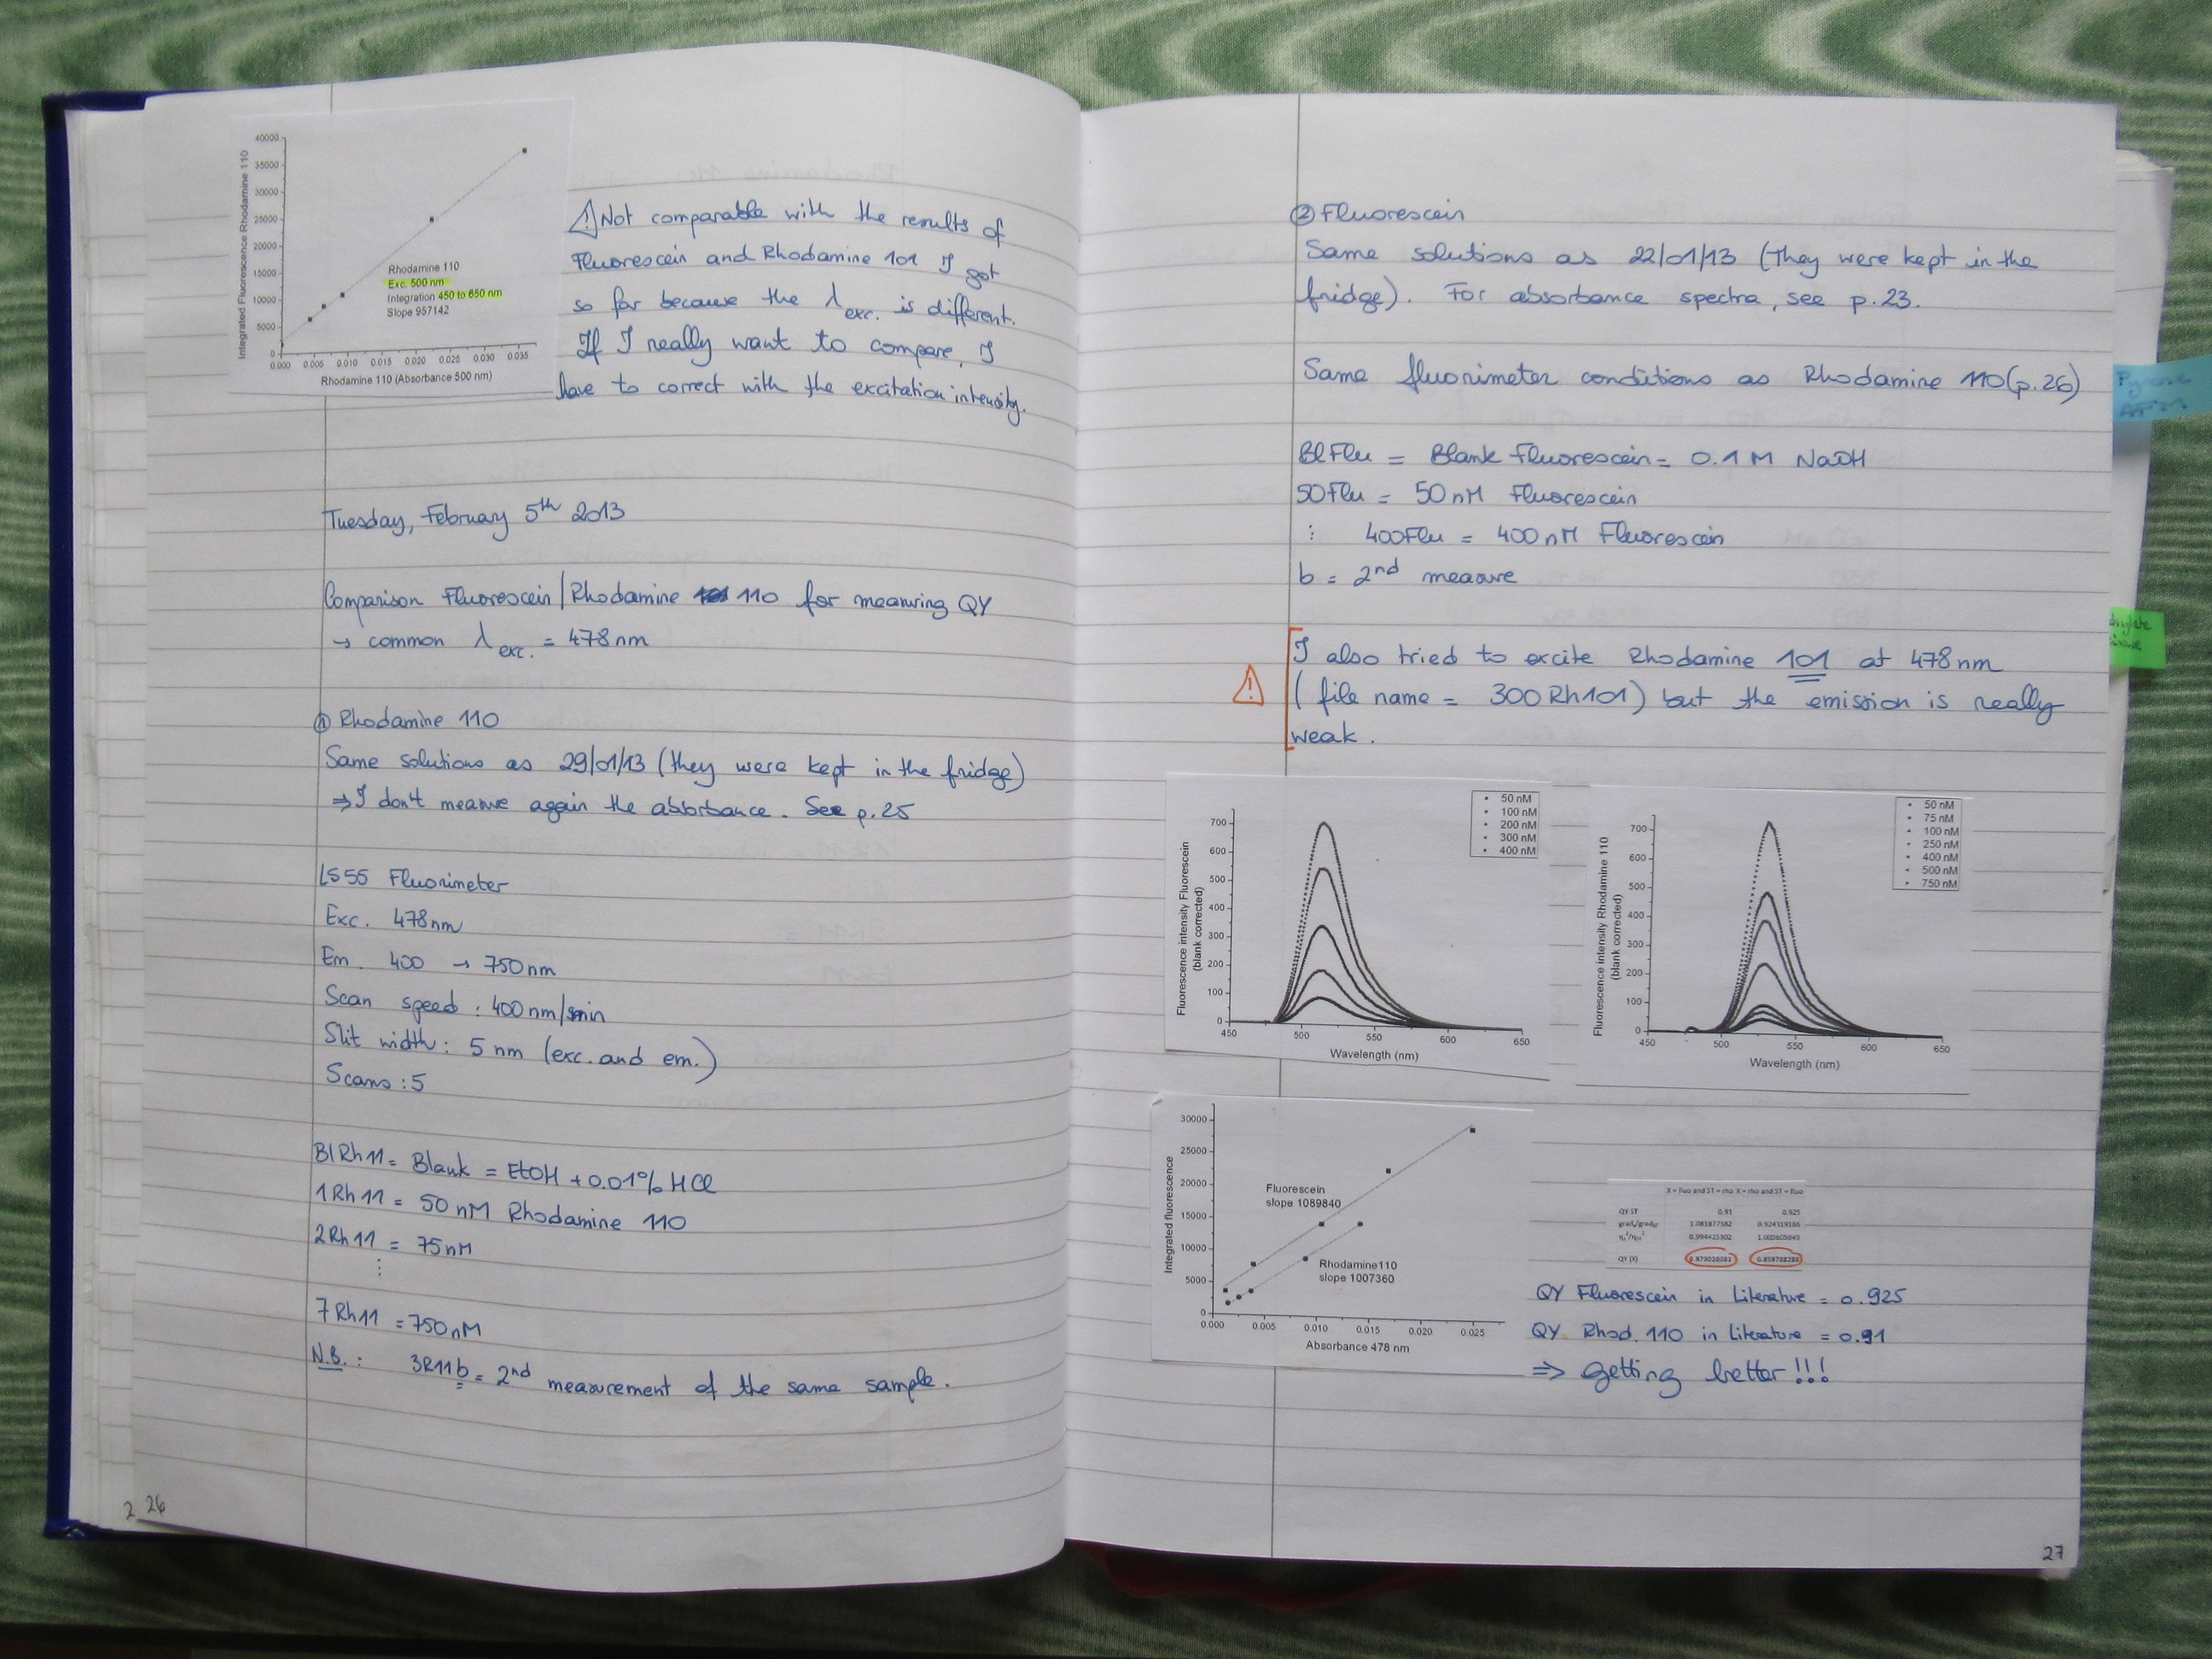 Integrated Fluorescence Rhodamine 110
40000
35000
30000
25000
20000
15000
10000
5000
0
Rhodamine 110
Exc. 500 nm
Integration 450 to 650 nm
Slope 957142
0.000 0.005 0.010 0.015 0.020 0.025 0.030 0.035
Rhodamine 110 (Absorbance 500 nm)
⚠ Not comparable with the results of
Fluorescein and Rhodamine 101 I got
so far because the λ exc. is different.
If I really want to compare, I
have to correct with the excitation intensity.
Tuesday, February 5th 2013
Comparison Fluorescein/Rhodamine 110 for measuring QY
→ common λ exc. = 478 nm
① Rhodamine 110
Same solutions as 29/01/13 (they were kept in the fridge)
⇒ I don't measure again the absorbance. See p.25
LS55 Fluorimeter
Exc. 478nm
Em. 400 → 750nm
Scan speed: 400nm/min
Slit width: 5 nm (exc. and em.)
Scans: 5
BlRh11 = Blank = EtOH + 0.01% HCl
1Rh11 = 50 nM Rhodamine 110
2Rh11 = 75nM
⋮
7Rh11 = 750nM
N.B.: 3R11b = 2nd measurement of the same sample.
26
② Fluorescein
Same solutions as 22/01/13 (They were kept in the
fridge). For absorbance spectra, see p.23.
Same fluorimeter conditions as Rhodamine 110 (p.26)
BlFlu = Blank Fluorescein = 0.1 M NaOH
50Flu = 50 nM Fluorescein
⋮ 400Flu = 400 nM Fluorescein
b = 2nd measure
⚠ I also tried to excite Rhodamine 101 at 478nm
(file name = 300Rh101) but the emission is really
weak.
Fluorescence intensity Fluorescein
(blank corrected)
700
600
500
400
300
200
100
0
50 nM
100 nM
200 nM
300 nM
400 nM
450 500 550 600 650
Wavelength (nm)
Fluorescence intensity Rhodamine 110
(blank corrected)
700
600
500
400
300
200
100
0
50 nM
75 nM
100 nM
250 nM
400 nM
500 nM
750 nM
450 500 550 600 650
Wavelength (nm)
Integrated fluorescence
30000
25000
20000
15000
10000
5000
0
Fluorescein
slope 1089840
Rhodamine110
slope 1007360
0.000 0.005 0.010 0.015 0.020 0.025
Absorbance 478 nm
X = fluo and ST = rho X = rho and ST = fluo
QY ST 0.91 0.925
QY (X)
QY Fluorescein in Literature = 0.925
QY Rhod. 110 in Literature = 0.91
⇒ getting better!!!
27